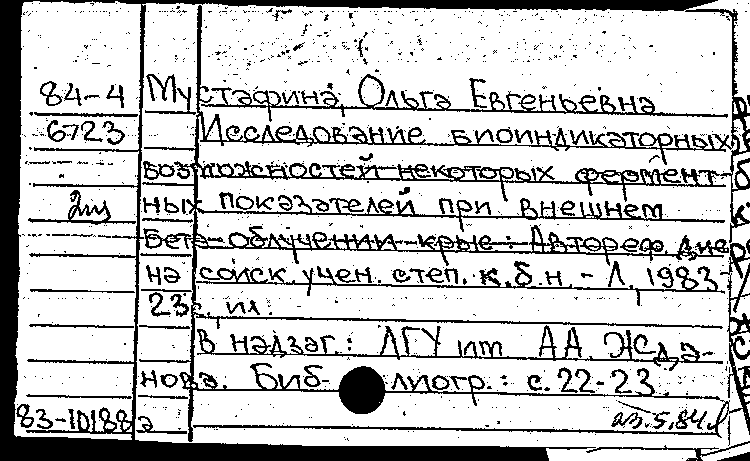 84-4 Мустафина, Ольга Евгеньевна
6723 Исследование биоиндикаторных
возможностей некоторых фермент-
ных показателей при внешнем
бета-облучении крыс: Автореф. дис.
на соиск. учен. степ. к.б.н. - Л, 1983-
23с. ил.
В надзаг.: ЛГУ им А.А. Жда-
нова. Библиогр.: с.22-23.
83-10188а